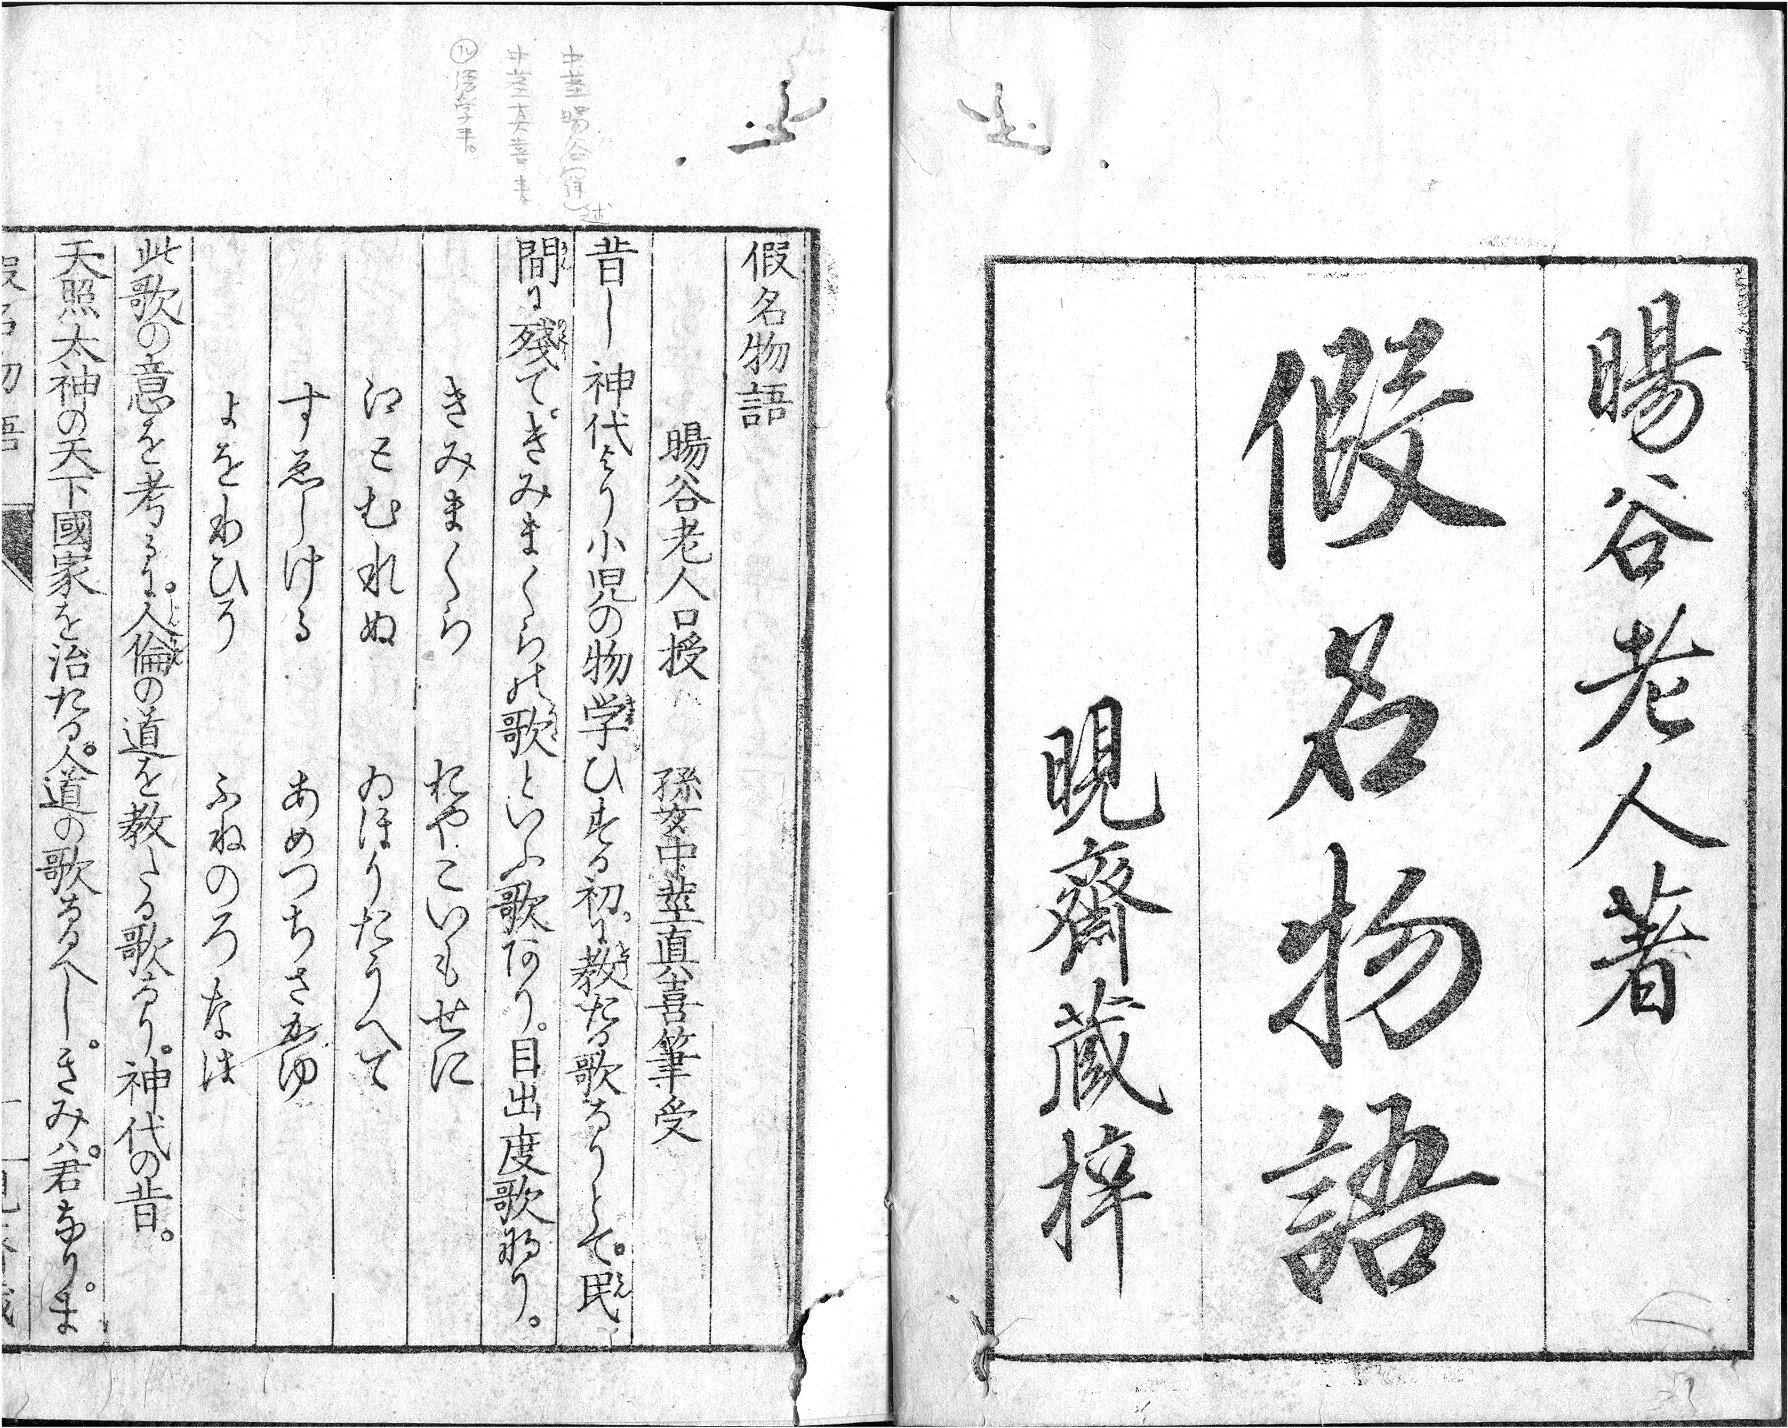 暘谷老人著
假名物語
晛齋蔵梓
假名物語
暘谷老人口授 孫女中莖真喜筆受
昔し神代より小児の物学ひする初に教たる歌なりとて。民
間に残て。きみまくらの歌といふ歌あり。目出度歌なり。
きみまくら おやこいもせに
えとむれぬ ゐほりたうへて
すゑしける あめつちさかゆ
よをわひそ ふねのろなは
此歌の意を考るに。人倫の道を教たる歌なり。神代の昔。
天照太神の天下國家を治たる。人道の歌なるへし。きみハ。君なり。ま